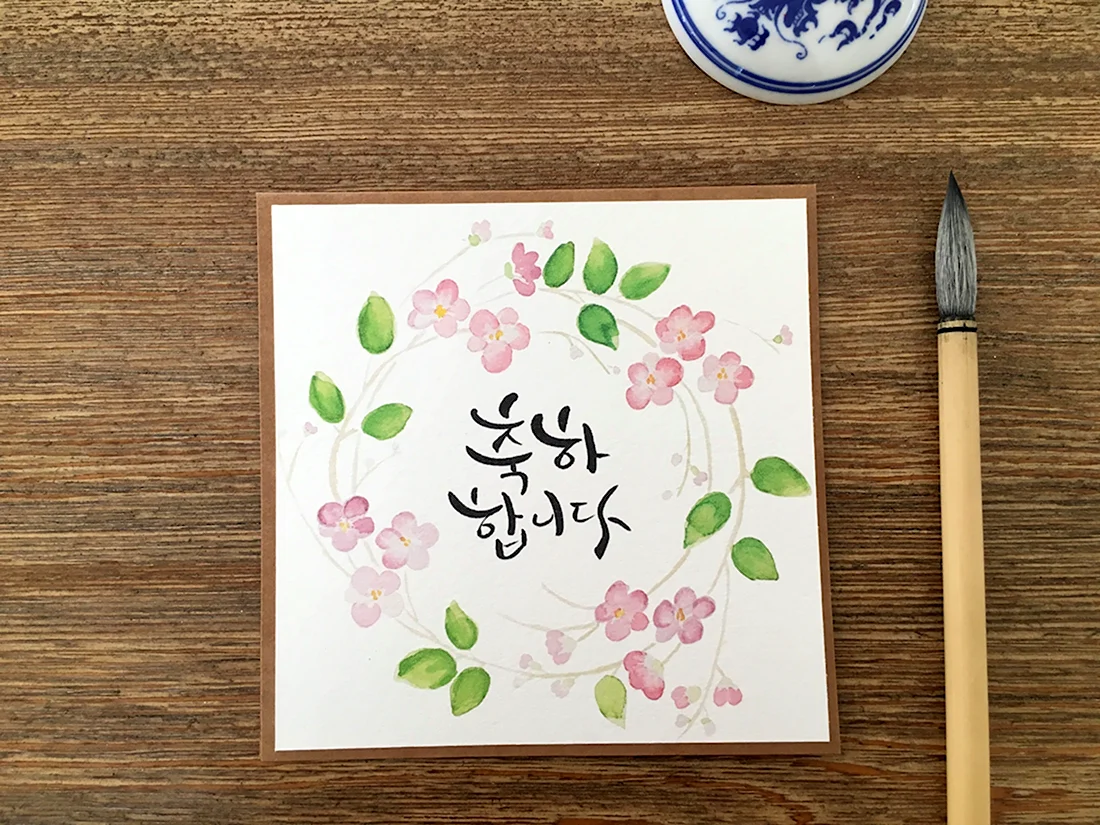 축하
합니다